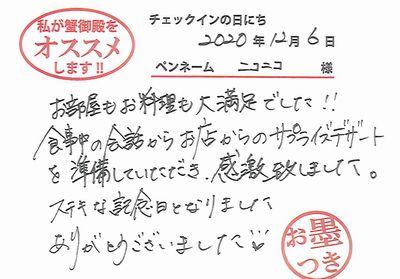 私が蟹御殿を
オススメ
します!!
チェックインの日にち
2020年12月6日
ペンネーム ニコニコ 様
お部屋もお料理も大満足でした!!
食事中の会話からお店からのサプライズデザート
を準備していただき、感激致しました。
ステキな記念日となりました
ありがとうございました♡
お墨
つき